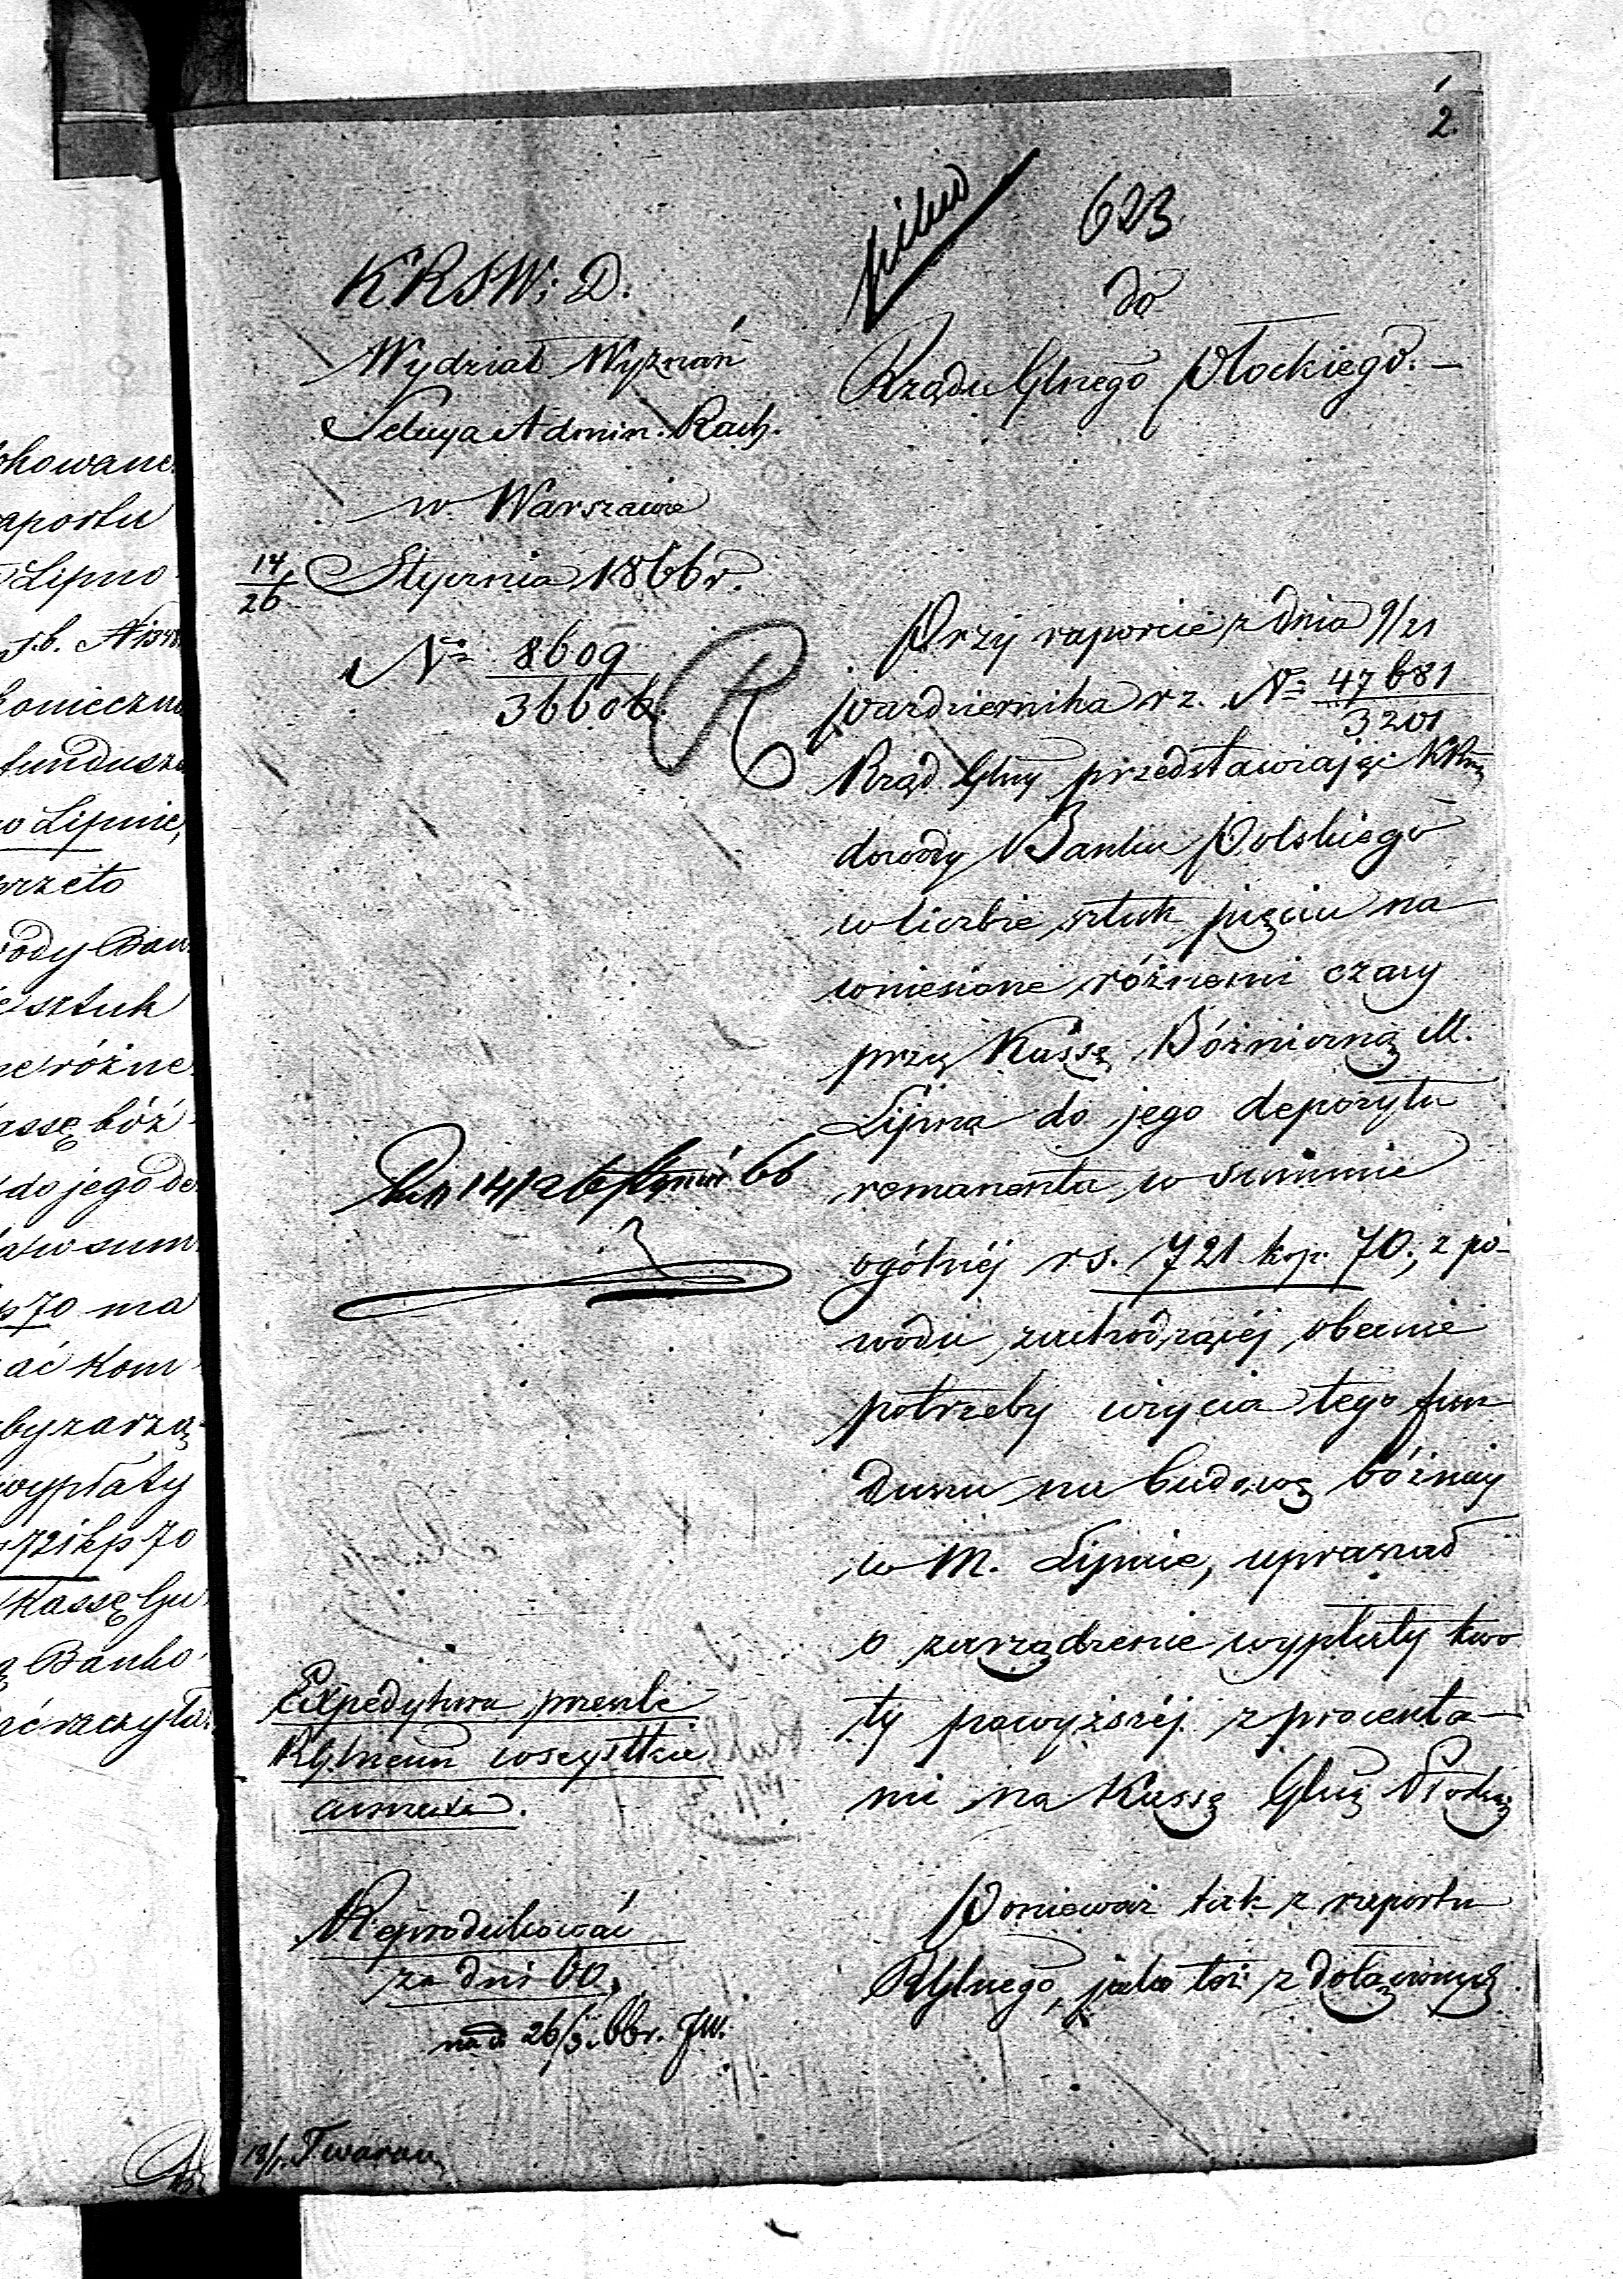 2.
pilno
623
do
Rządu Glnego Płockiego. —
KRSW. i D.
Wydział Wyznań
Sekcya Admin. Rach.
w Warszawie
14/26 Stycznia 1866 r.
№ 8609/36606.
R
Przy raporcie z dnia 9/21
Października r z. № 47681/3201
Rząd Glny przedstawiając KRząd.
dowody Banku Polskiego
w liczbie sztuk pięciu na
wniesione różnemi czasy
przez Kassę Bóżniczną M.
Lipna do jego depozytu
remanenta w summie
ogólnéj rs. 721 kop. 70; z po-
wodu zachodzącéj obecnie
potrzeby użycia tego fun
duszu na budowę bóżnicy
w M. Lipnie, upraszał
o zarządzenie wypłaty kwo
ty powyższéj z procenta-
mi na Kassę Glną Płocką
Ponieważ tak z raportu
RGlnego, jako też z dołączonych
14/26 66
Expedytura prześle
RGlnemu wszystkie
annexa.
Reprodukować
za dni 60.
na d 26/3 66 r.
okowane
aportu
Lipno
r.b. №
konieczn
fundusz
w Lipnie,
przeto
ody Ban
sztuk
e różne
assę bóż
do jego de
a w sum
70 ma
ać Kom
by zarzą-
wypłaty
721 kp 70
Kassę Gu
Banko
ać raczyła.